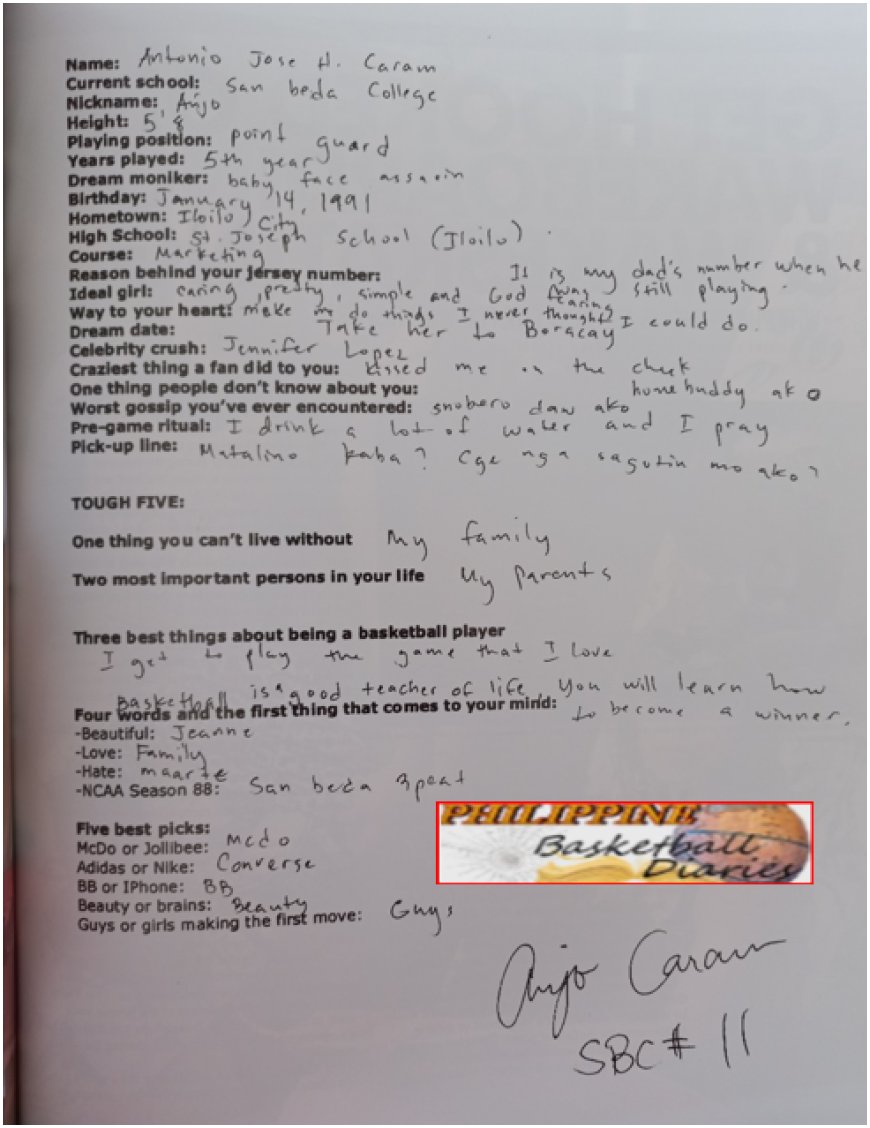 Name: Antonio Jose H. Caram
Current school: San beda College
Nickname: Anjo
Height: 5'8
Playing position: point guard
Years played: 5th year
Dream moniker: baby face assasin
Birthday: January 14, 1991
Hometown: Iloilo City
High School: St. Joseph School (Iloilo)
Course: Marketing
Reason behind your jersey number: It is my dad's number when he was still playing.
Ideal girl: caring, pretty, simple and God fearing
Way to your heart: make me do things I never thought I could do.
Dream date: Take her to Boracay
Celebrity crush: Jennifer Lopez
Craziest thing a fan did to you: kissed me on the cheek
One thing people don't know about you: homebuddy ako
Worst gossip you've ever encountered: snobero daw ako
Pre-game ritual: I drink a lot of water and I pray
Pick-up line: Matalino kaba? Cge nga sagutin mo ako?
TOUGH FIVE:
One thing you can't live without My family
Two most important persons in your life My parents
Three best things about being a basketball player
I get to play the game that I love
Basketball is a good teacher of life. You will learn how
to become a winner.
Four words and the first thing that comes to your mind:
-Beautiful: Jeanne
-Love: Family
-Hate: maarte
-NCAA Season 88: San beda 3peat
Five best picks:
McDo or Jollibee: Mcdo
Adidas or Nike: Converse
BB or IPhone: BB
Beauty or brains: Beauty
Guys or girls making the first move: Guys
PHILIPPINE
Basketball
Diaries
Anjo Caram
SBC # 11